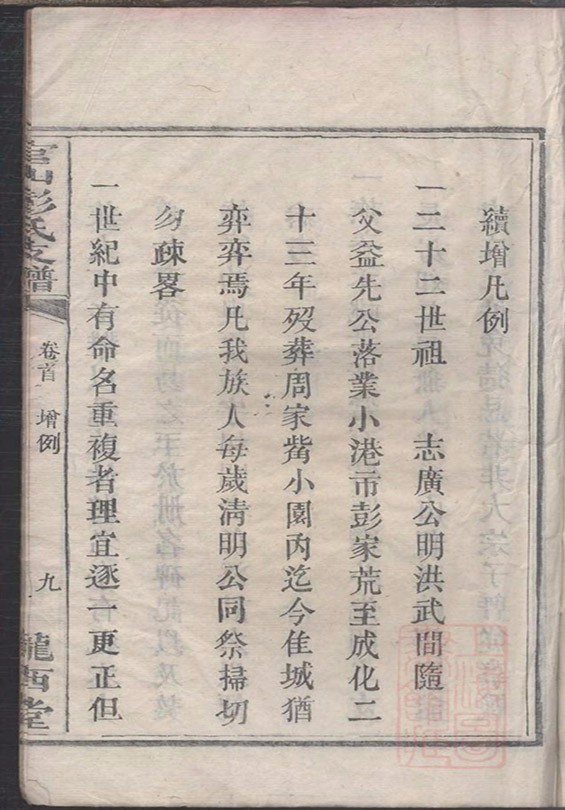 續增凡例
一二十二世祖　志廣公明洪武間隨
父益先公落業小港市彭家荒至成化二
十三年歿葬周家觜小園內迄今佳城猶
弈弈焉凡我族人每歲淸明公同祭掃切
勿疎畧
一世紀中有命名重複者理宜逐一更正但
官山彭氏支譜
卷首　增例
九
隴西堂